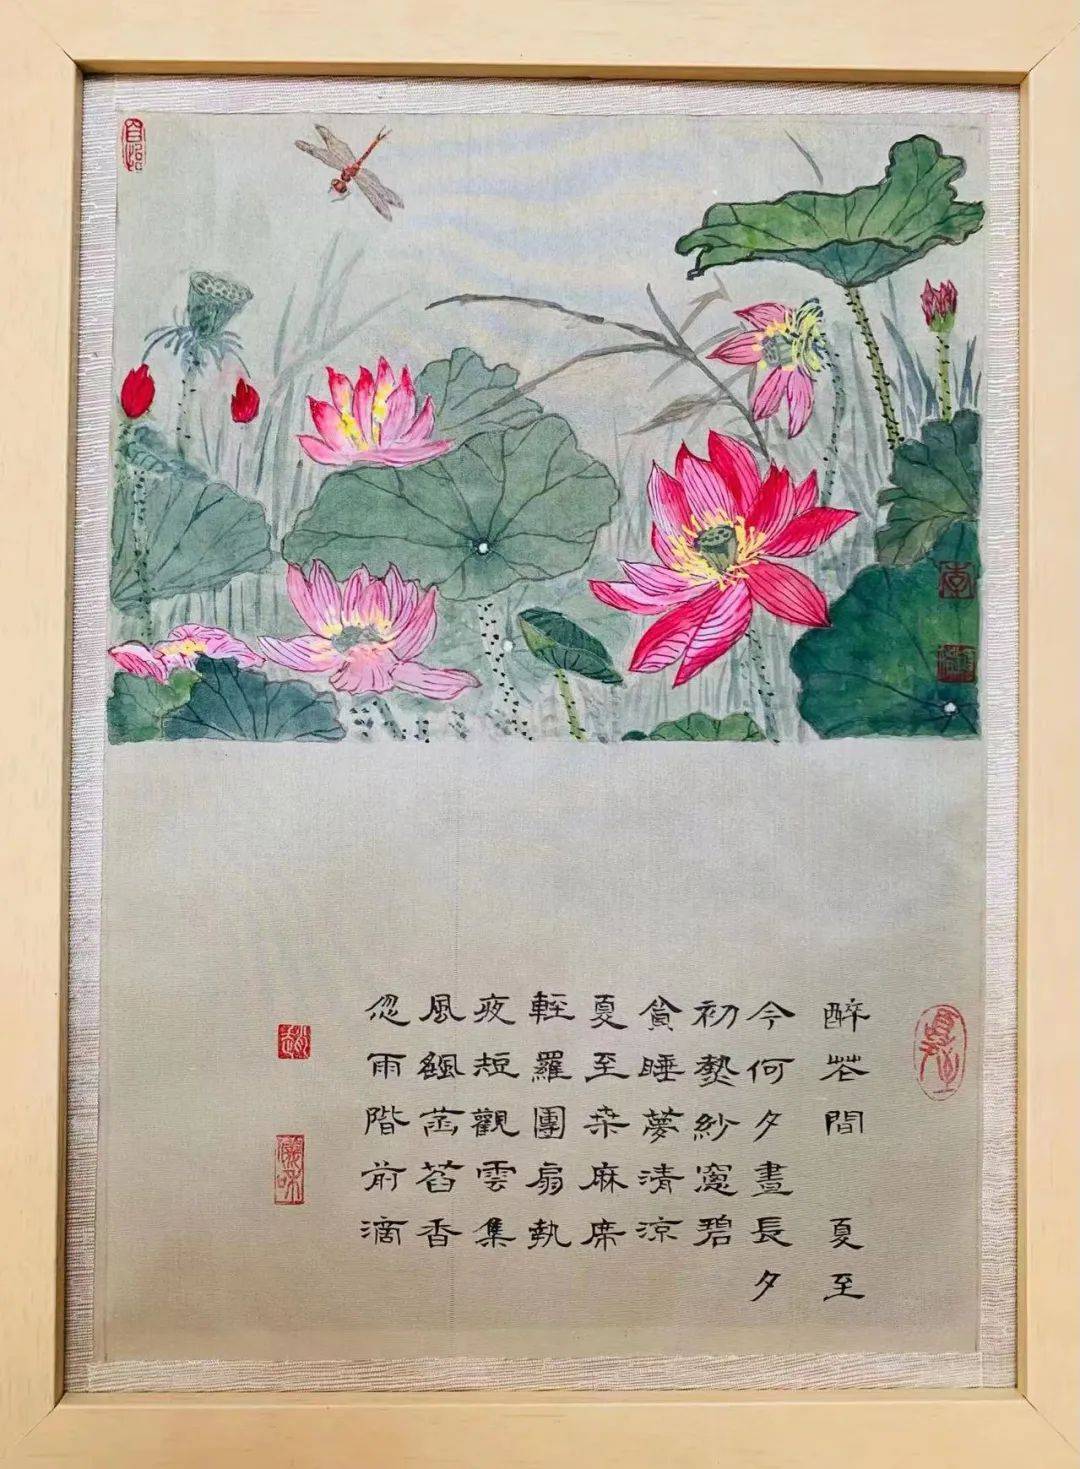 醉花間 夏至
今何夕晝長夕
初熱紗窻碧
貪睡夢清涼
夏至桒麻席
輕羅團扇執
夜短觀雲集
風颻菡萏香
忽雨階前滴
夏至